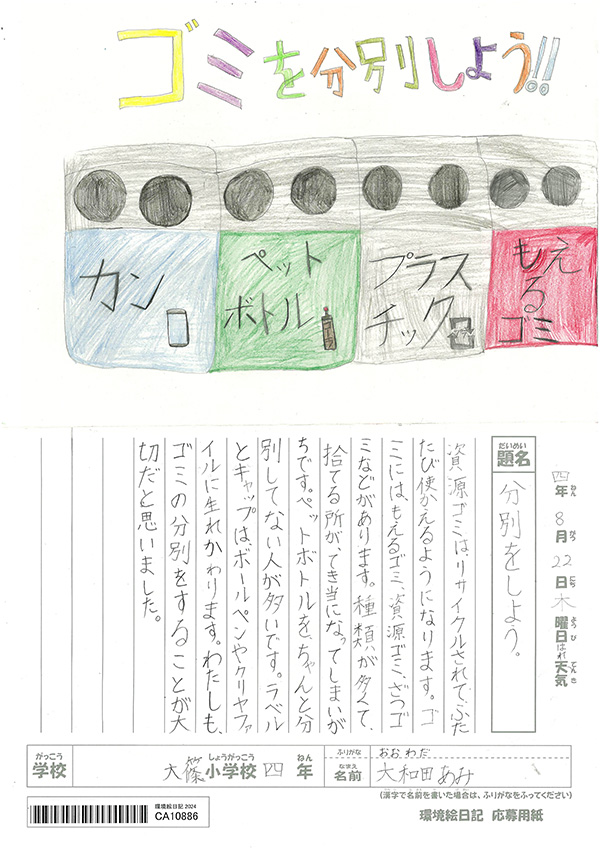 ゴミを分別しよう!!
カン
ペット
ボトル
コーラ
プラス
チック
もえ
る
ゴミ
四年8月22日木曜日はれ天気
ねん がつ にち ようび てんき
だいめい
題名
分別をしよう。
資源ゴミは、リサイクルされて、ふた
たび使かえるようになります。ゴ
ミには、もえるゴミ、資源ゴミ、ざつゴ
ミなどがあります。種類が多くて、
捨てる所が、てき当になってしまいが
ちです。ペットボトルを、ちゃんと分
別してない人が多いです。ラベル
とキャップは、ボールペンやクリヤファ
イルに生れかわります。わたしも、
ゴミの分別をすることが大
切だと思いました。
がっこう
学校
しょうがっこう ねん
大篠小学校 四年
ふりがな
おおわだ
なまえ
名前
大和田あみ
(漢字で名前を書いた場合は、ふりがなをふってください)
環境絵日記 2024
CA10886
環境絵日記 応募用紙